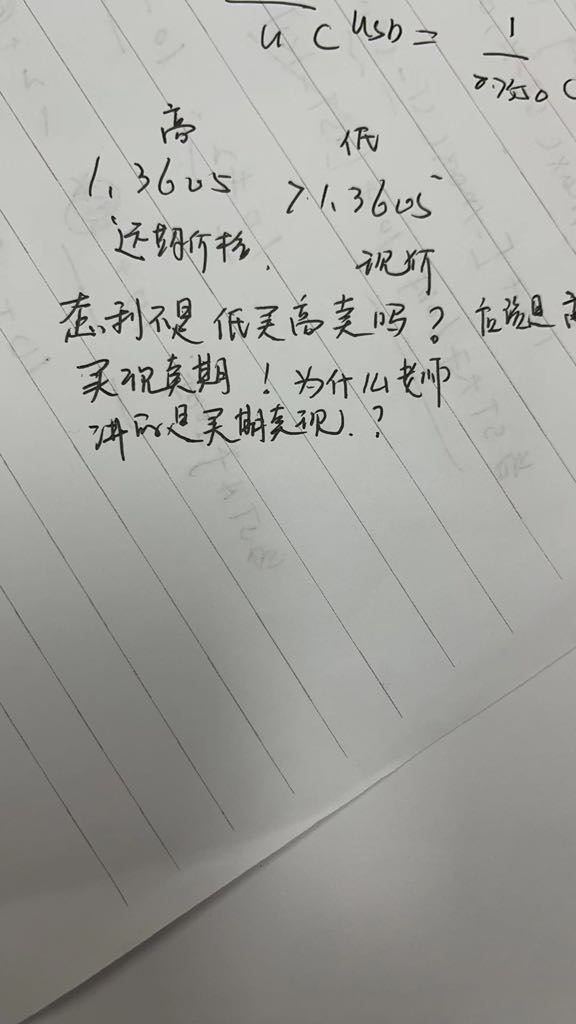 u C USD = 1
0.7350 C
高 低
1.3605 > 1.3605
远期价格. 现价
套利不是低买高卖吗？应该是高
买现卖期！为什么老师
讲的是买期卖现.？